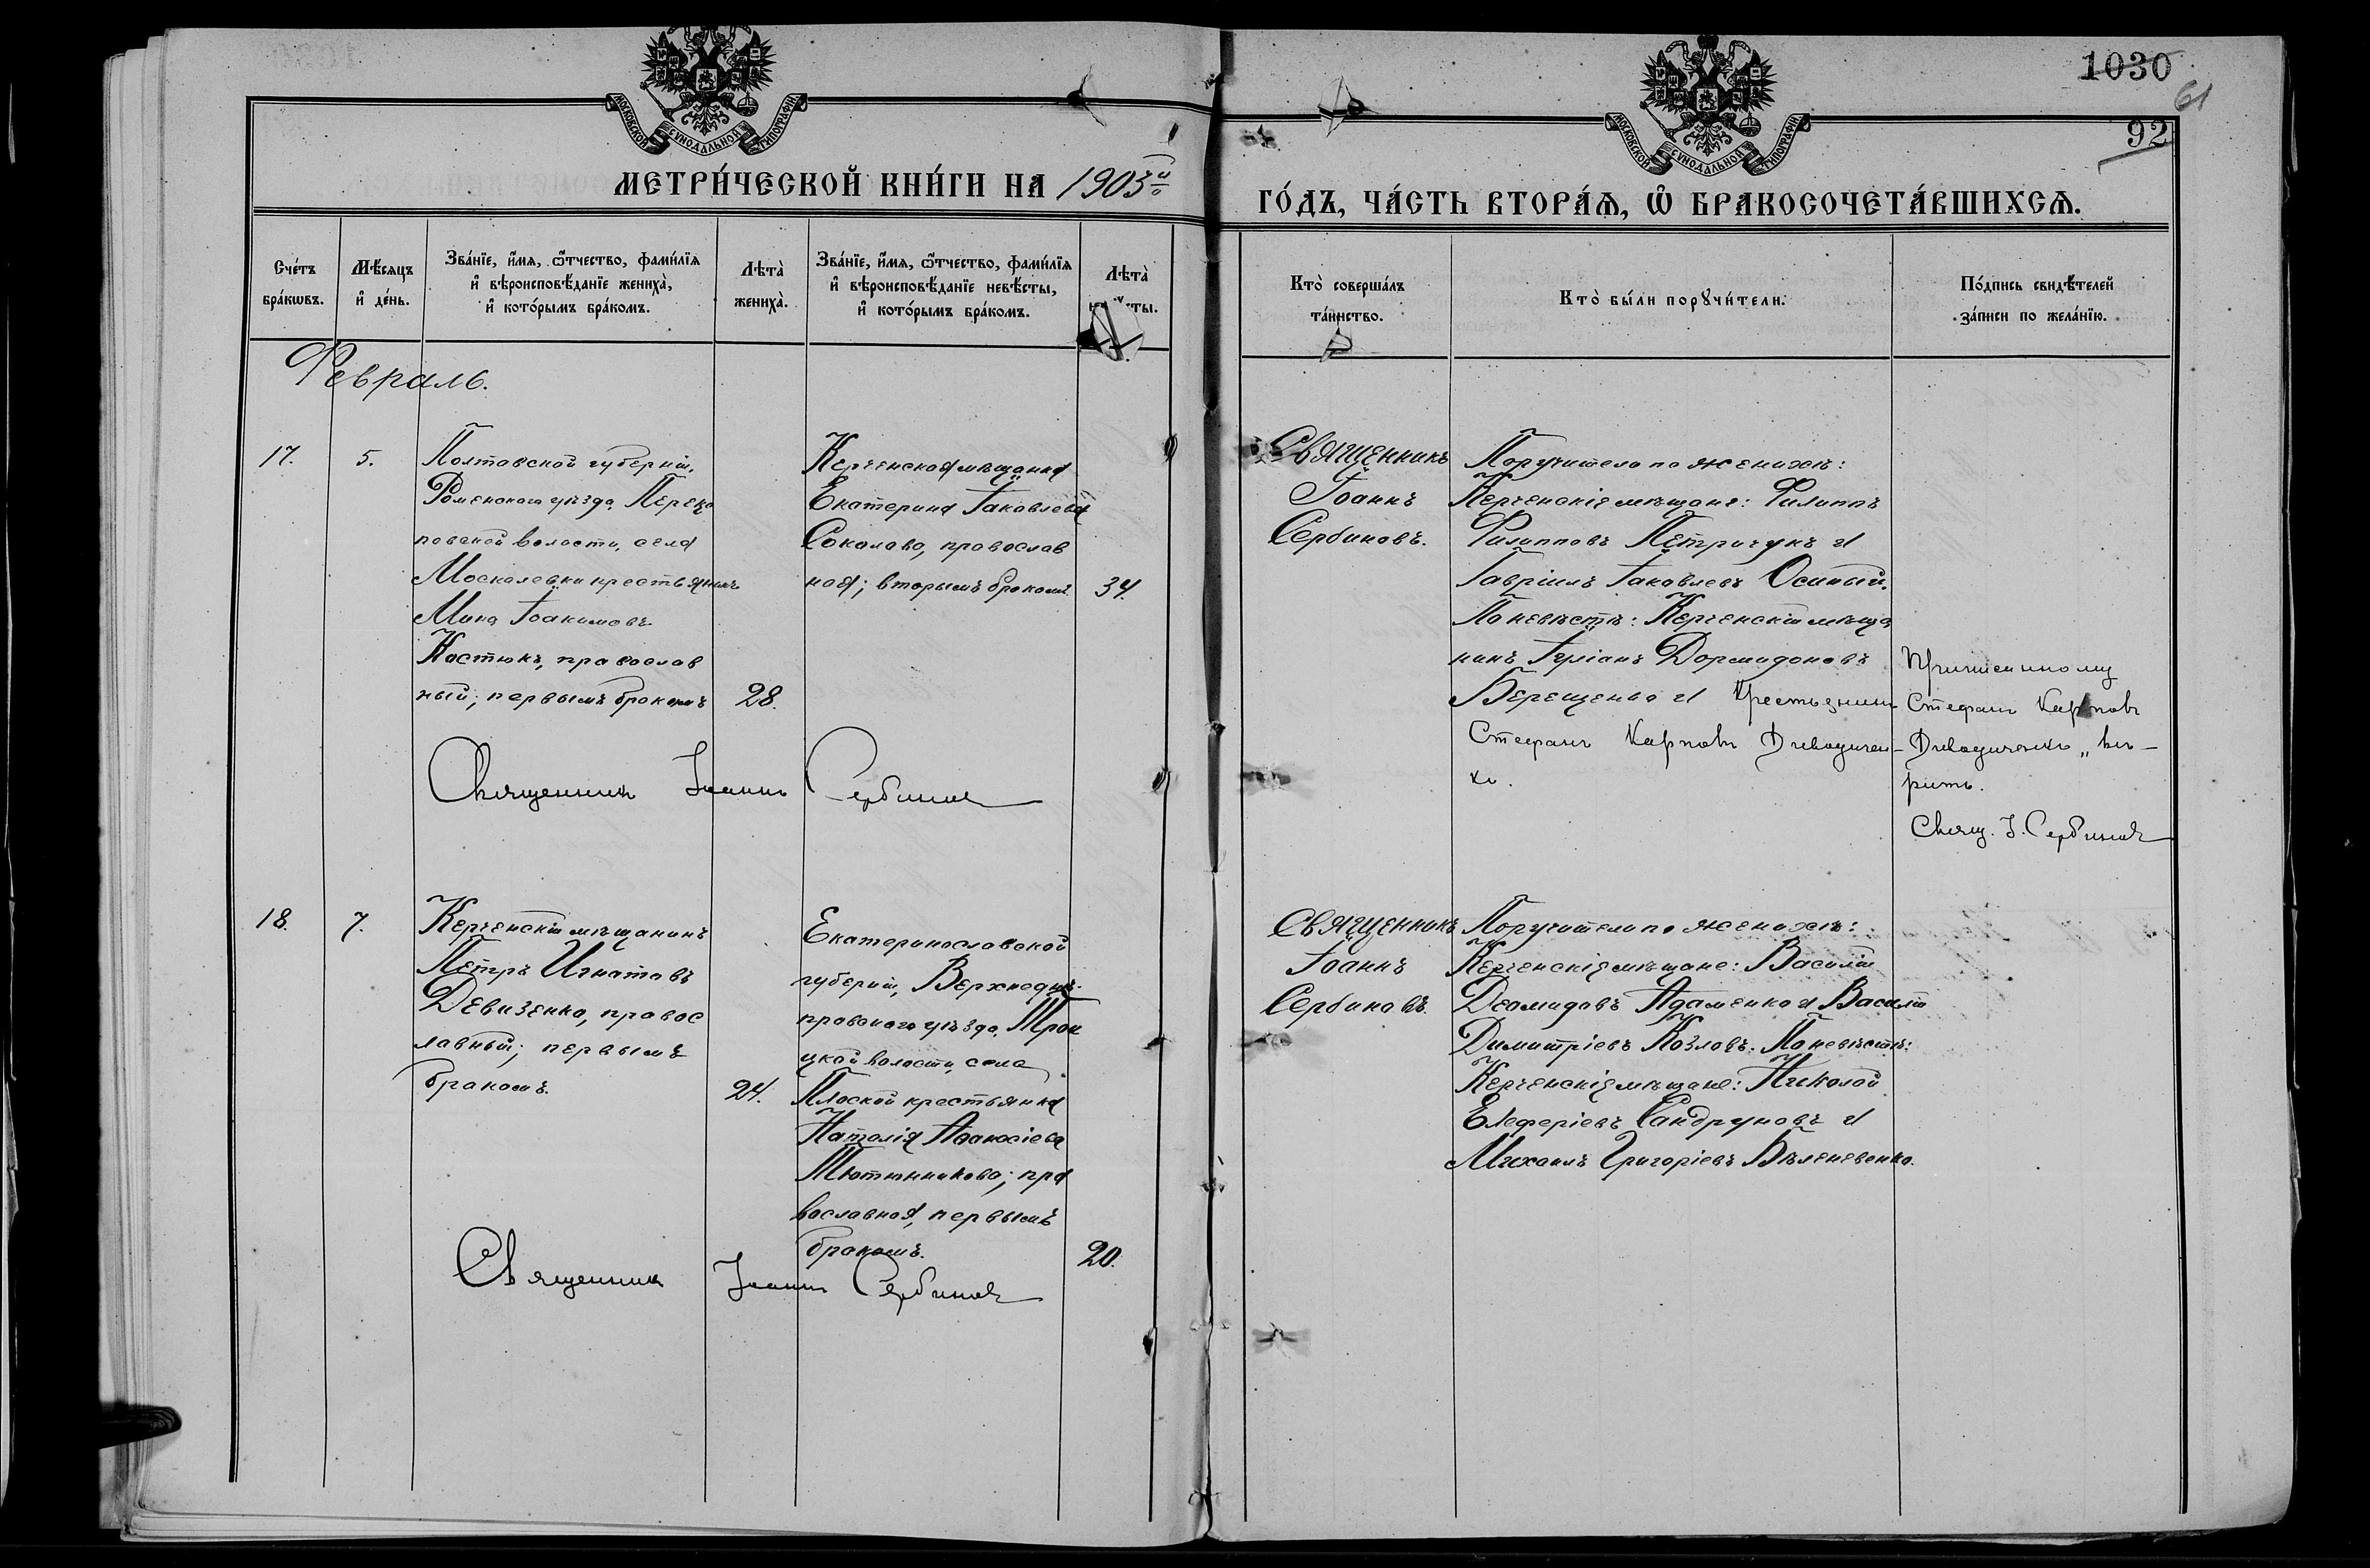 1030
61
92
МОСКОВСКОЙ СѴНОДАЛЬНОЙ ТИПОГРАФІИ
МОСКОВСКОЙ СѴНОДАЛЬНОЙ ТИПОГРАФІИ
МЕТРИ́ЧЕСКОЙ КНИ́ГИ НА 1903й
ГО́ДЪ, ЧА́СТЬ ВТОРА́Ѧ, Ѽ БРАКОСОЧЕТА́ВШИХСѦ.
Сче́тъ
бра́кѡвъ.
Мѣ́сяцъ
и҆ де́нь.
Зва́нїе, и҆́мѧ, ѻ҆́тчество, фами́лїѧ
и҆ вѣроисповѣ́данїе жениха̀,
и҆ кото́рымъ бра́комъ.
Лѣта̀
жениха̀.
Зва́нїе, и҆́мѧ, ѻ҆́тчество, фами́лїѧ
и҆ вѣроисповѣ́данїе невѣ́сты,
и҆ кото́рымъ бра́комъ.
Лѣта̀
Кто̀ соверша́лъ
та́инство.
Кто̀ бы́ли порꙋчи́тели.
По́дпись свидѣ́телей
за́писи по жела́нїю.
Февраль.
17.
5.
Полтавской губерніи,
Роменскаго уѣзда, Переко
повской волости, села
Москалевки крестьянинъ
Мина Іоакимовъ
Костюкъ, православ
ный; первымъ бракомъ
28.
Керченская мѣщанка
Екатерина Іаковлева
Соколова, православ
ная; вторымъ бракомъ.
34.
Священникъ Іоаннъ Сербиновъ
Священникъ
Іоаннъ
Сербиновъ.
Поручители по женихѣ:
Керченскіе мѣщане: Филиппъ
Филипповъ Петричукъ и
Гавріилъ Іаковлевъ Осипый.
По невѣстѣ: Керченскій мѣща
нинъ Іуліанъ Дормидоновъ
Верещенко и Крестьянинъ
Стефанъ Карповъ
ко.
Стефанъ Карповъ
рить.
Свящ. І. Сербиновъ
18.
7.
Керченскій мѣщанинъ
Петръ Игнатовъ
Девизенко, правос
лавный; первымъ
бракомъ.
24.
Екатеринославской
губерніи, Верхнеднѣ-
провскаго уѣзда, Трои
цкой волости, села
Плоской крестьянка
Наталія Аѳанасіева
Тютюнникова; пра
вославная, первымъ
бракомъ.
20.
Священникъ Іоаннъ Сербиновъ
Священникъ
Іоаннъ
Сербиновъ.
Поручители по женихѣ:
Керченскіе мѣщане: Василій
Деомидовъ Адаменко и Василій
Димитріевъ Козловъ. По невѣстѣ:
Керченскіе мѣщане: Николай
Елеферіевъ Сандруновъ и
Михаилъ Григоріевъ